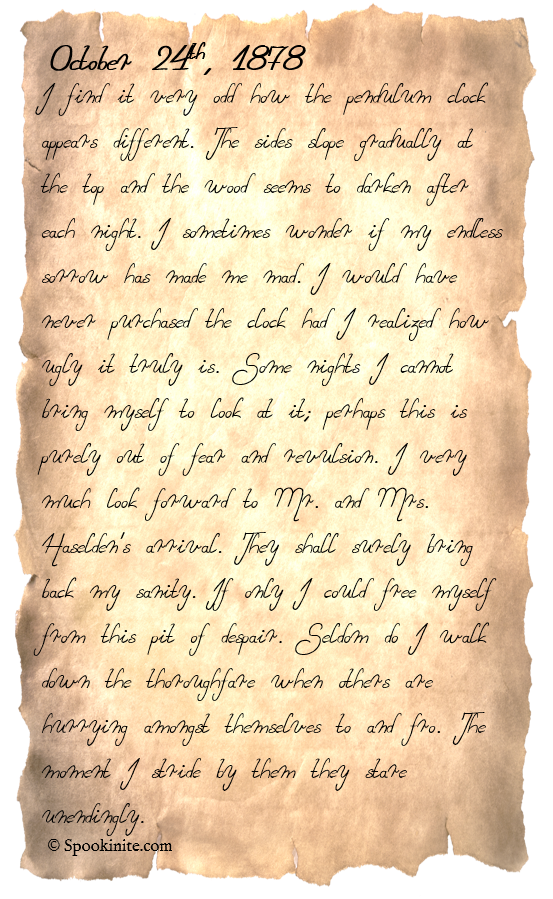 October 24th, 1878
I find it very odd how the pendulum clock
appears different. The sides slope gradually at
the top and the wood seems to darken after
each night. I sometimes wonder if my endless
sorrow has made me mad. I would have
never purchased the clock had I realized how
ugly it truly is. Some nights I cannot
bring myself to look at it; perhaps this is
purely out of fear and revulsion. I very
much look forward to Mr. and Mrs.
Haselden's arrival. They shall surely bring
back my sanity. If only I could free myself
from this pit of despair. Seldom do I walk
down the thoroughfare when others are
hurrying amongst themselves to and fro. The
moment I stride by them they stare
unendingly.
© Spookinite.com